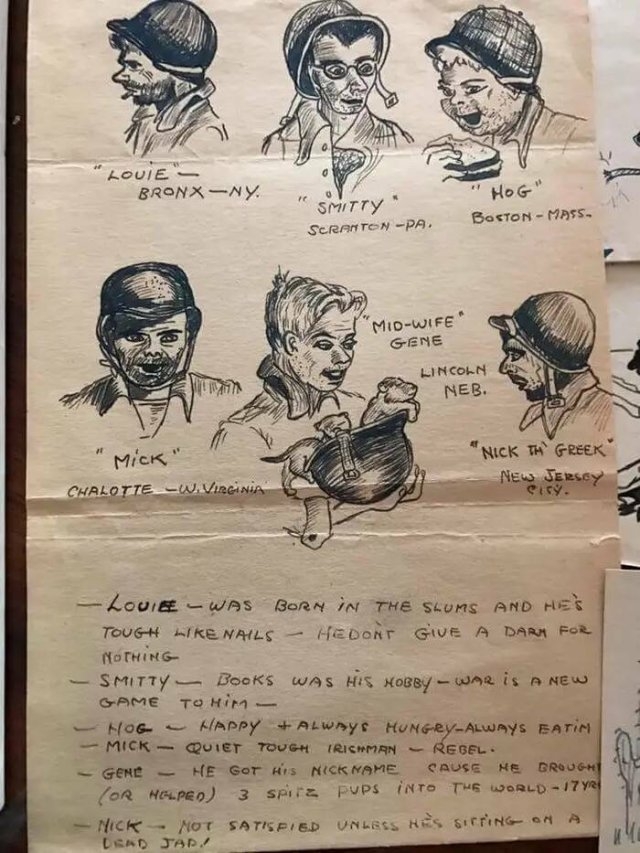 "LOUIE" —
BRONX — N.Y.
"SMITTY"
SCRANTON - PA.
"HOG"
BOSTON - MASS.
"MICK"
CHALOTTE — W. VIRGINIA
"MID-WIFE"
GENE
LINCOLN
NEB.
"NICK TH' GREEK"
NEW JERSEY
CITY.
— LOUIE — WAS BORN IN THE SLUMS AND HE'S
TOUGH LIKE NAILS — HE DON'T GIVE A DARN FOR
NOTHING
— SMITTY — BOOKS WAS HIS HOBBY — WAR IS A NEW
GAME TO HIM —
— HOG — HAPPY + ALWAYS HUNGRY — ALWAYS EATIN
— MICK — QUIET TOUGH IRISHMAN — REBEL.
— GENE — HE GOT HIS NICKNAME CAUSE HE BROUGHT
(OR HELPED) 3 SPITZ PUPS INTO THE WORLD — 17 YR
— NICK — NOT SATISFIED UNLESS HE'S SITTING ON A
JAP!